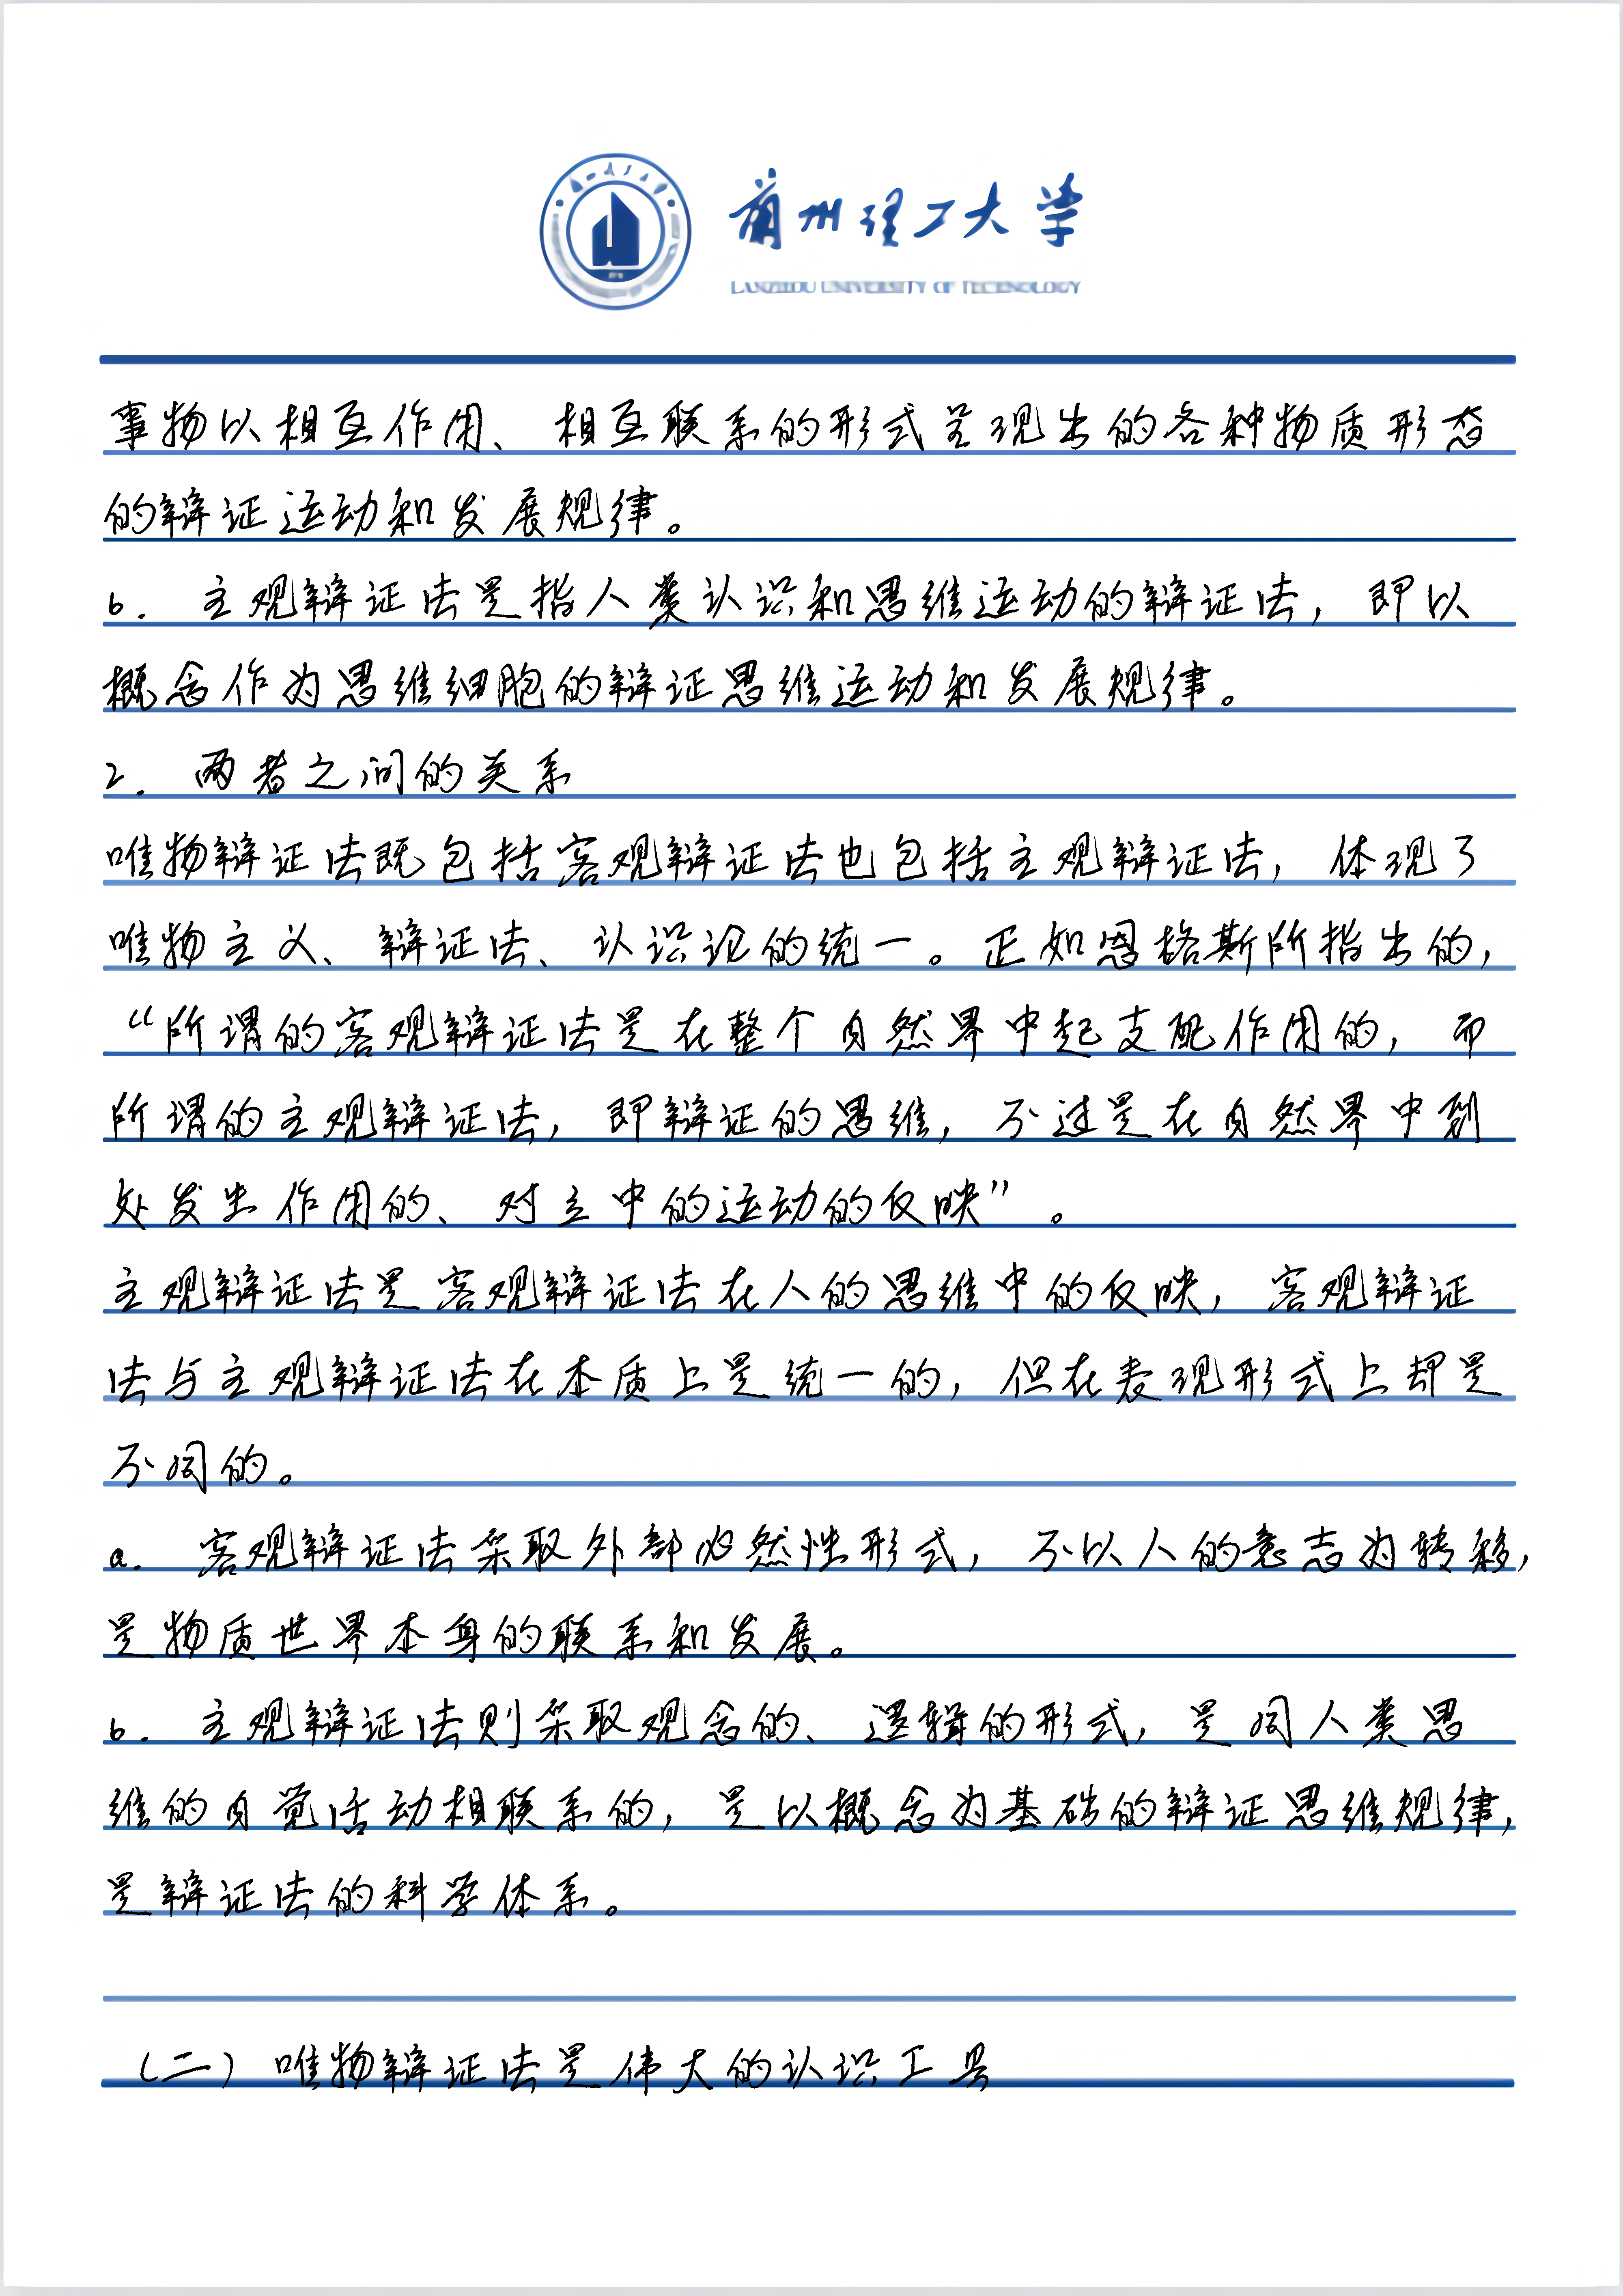 兰州理工大学
LANZHOU UNIVERSITY OF TECHNOLOGY
事物以相互作用、相互联系的形式呈现出的各种物质形态
的辩证运动和发展规律。
b. 主观辩证法是指人类认识和思维运动的辩证法,即以
概念作为思维细胞的辩证思维运动和发展规律。
2. 两者之间的关系
唯物辩证法既包括客观辩证法也包括主观辩证法,体现了
唯物主义、辩证法、认识论的统一。正如恩格斯所指出的,
“所谓的客观辩证法是在整个自然界中起支配作用的,而
所谓的主观辩证法,即辩证的思维,不过是在自然界中到
处发生作用的、对立中的运动的反映”。
主观辩证法是客观辩证法在人的思维中的反映,客观辩证
法与主观辩证法在本质上是统一的,但在表现形式上却是
不同的。
a. 客观辩证法采取外部必然性形式,不以人的意志为转移,
是物质世界本身的联系和发展。
b. 主观辩证法则采取观念的、逻辑的形式,是同人类思
维的自觉活动相联系的,是以概念为基础的辩证思维规律,
是辩证法的科学体系。
(二)唯物辩证法是伟大的认识工具